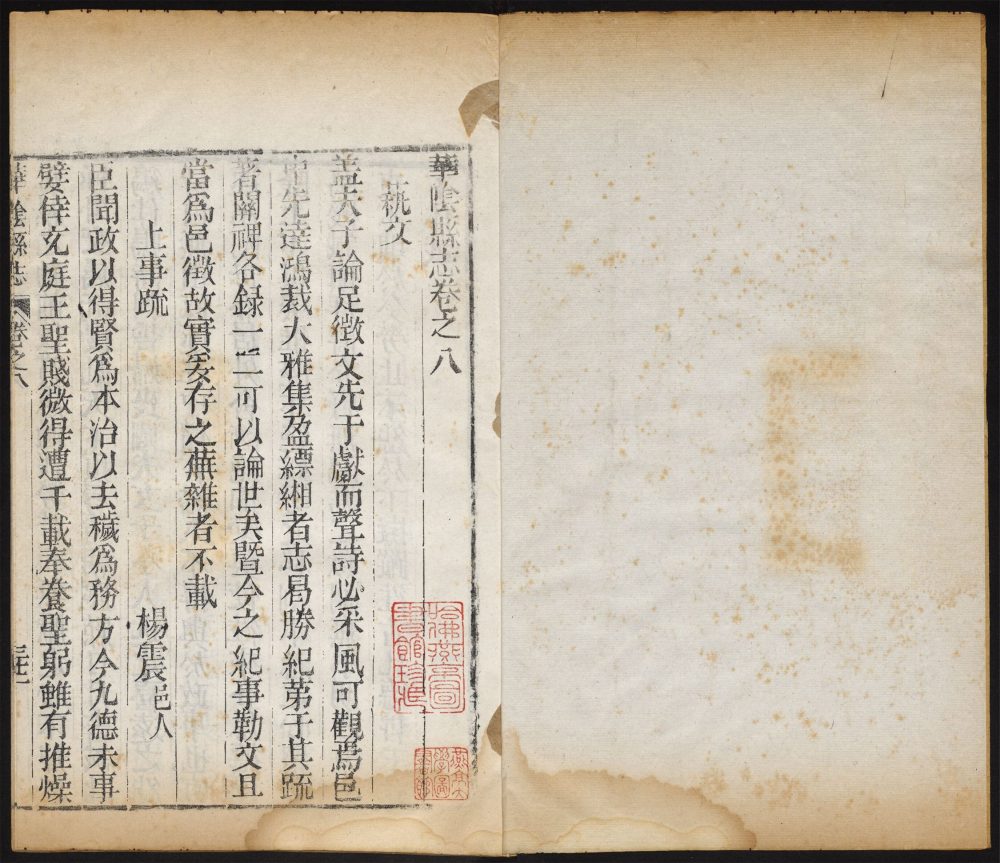 華陰縣志卷之八
蓺文
蓋夫子論足徵文先于獻而聲詩必采風可觀焉邑
中先達鴻裁大雅集盈縹緗者志曷勝紀第于其疏
著關裨各錄一二可以論世矣暨今之紀事勒文且
當爲邑徵故實爰存之蕪雜者不載
上事疏 楊震邑人
臣聞政以得賢爲本治以去穢爲務方今九德未事
嬖倖充庭王聖賤微得遭千載奉養聖躬雖有推燥
華陰縣志 卷之八
哈佛燕京圖書館珍藏